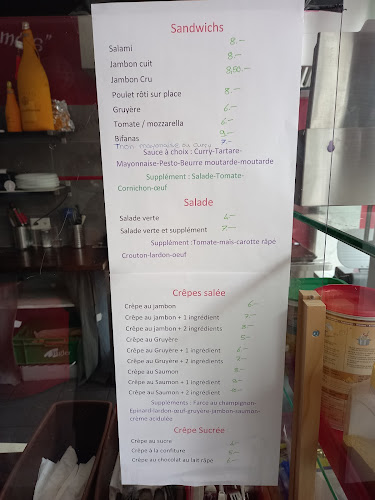 Sandwichs
Salami 8.-
Jambon cuit 8.-
Jambon Cru 8,50.-
Poulet rôti sur place 8.-
Gruyère 6.-
Tomate / mozzarella 6.-
Bifanas 9.-
Thon mayonnaise ou curry 7.-
Sauce à choix : Curry-Tartare-
Mayonnaise-Pesto-Beurre moutarde-moutarde
Supplément : Salade-Tomate-
Cornichon-œuf
Salade
Salade verte 4.-
Salade verte et supplément 7.-
Supplément :Tomate-mais-carotte râpé
Crouton-lardon-oeuf
Crêpes salée
Crêpe au jambon 6.-
Crêpe au jambon + 1 ingrédient 7.-
Crêpe au jambon + 2 ingrédients
Crêpe au Gruyère 5.-
Crêpe au Gruyère + 1 ingrédient
Crêpe au Gruyère + 2 ingrédients
Crêpe au Saumon
Crêpe au Saumon + 1 ingrédient
Crêpe au Saumon + 2 ingrédient
Suppléments : Farce au champignon-
Epinard-lardon-œuf-gruyère-jambon-saumon-
crème acidulée
Crêpe Sucrée
Crêpe au sucre
Crêpe à la confiture
Crêpe au chocolat au lait râpé